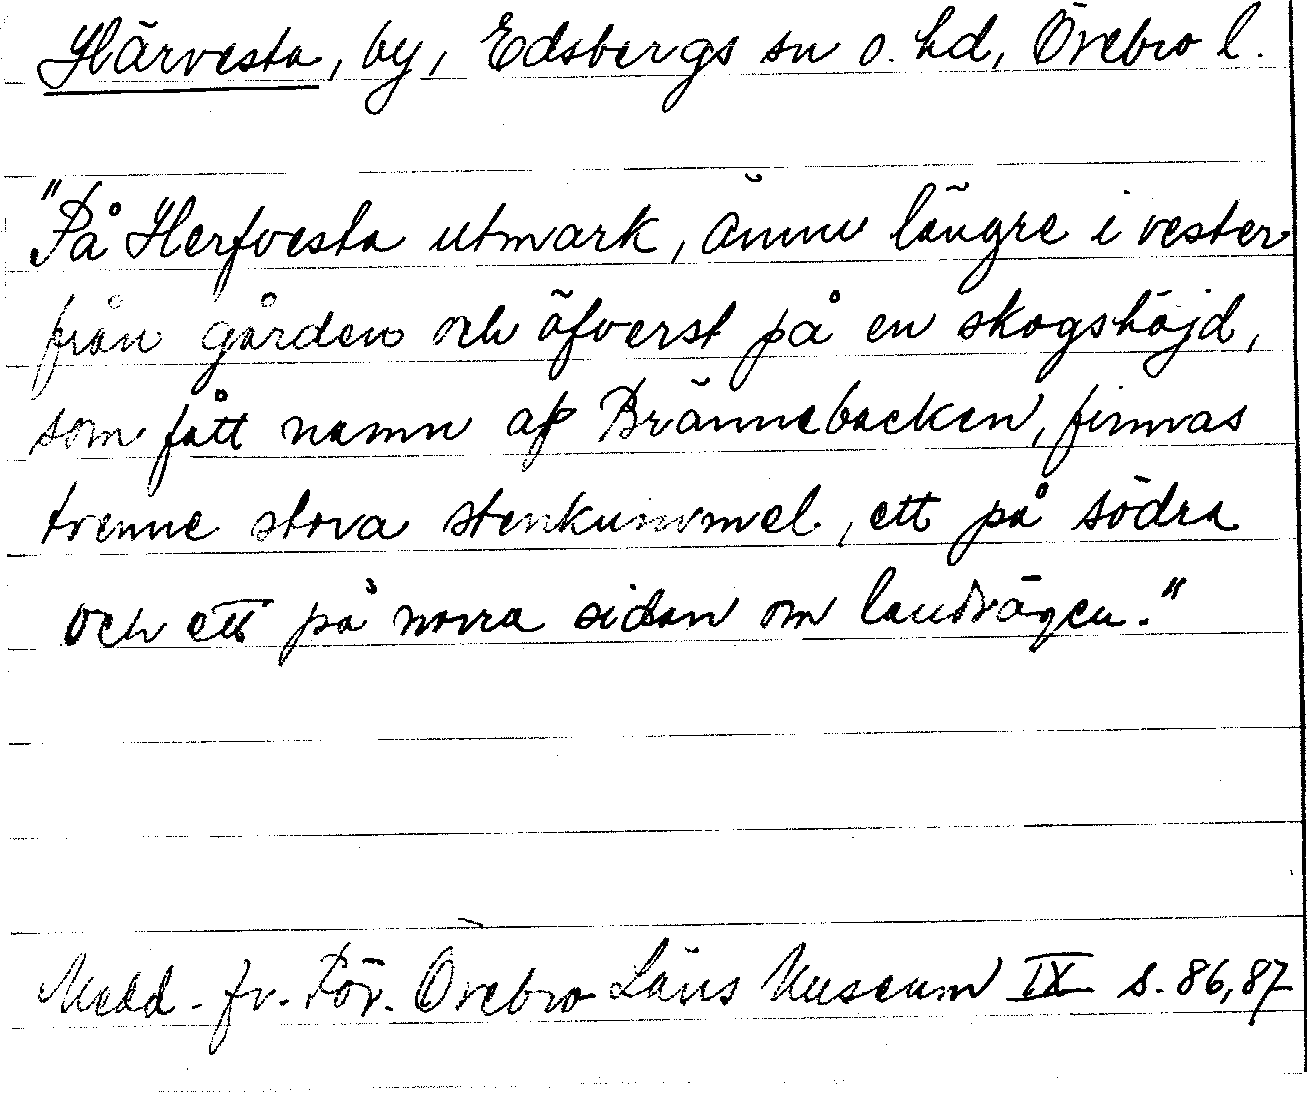 Härvesta, by, Edsbergs sn o. hd, Örebro l.
"På Herfvesta utmark, ännu längre i vester
från gården och öfverst på en skogshöjd,
som fått namn af Brännebacken, finnas
trenne stora stenkummel, ett på södra
och ett på norra sidan om landsvägen."
Medd. fr. För. Örebro Läns Museum IX s. 86,87